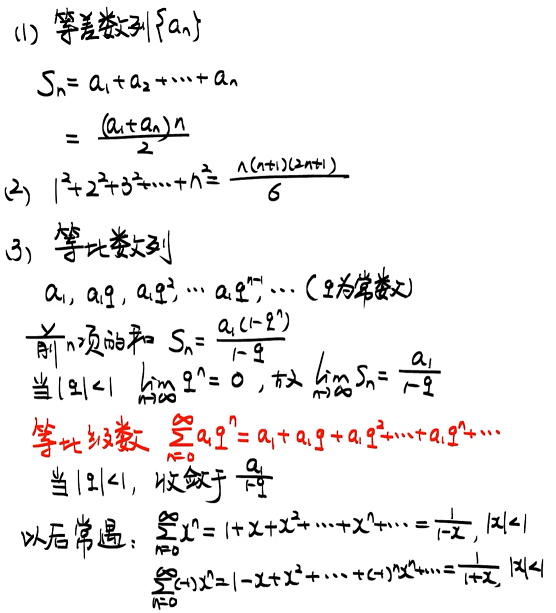 (1) 等差数列{aₙ}
Sₙ = a₁+a₂+⋯+aₙ
= (a₁+aₙ)n / 2
(2) 1²+2²+3²+⋯+n² = n(n+1)(2n+1) / 6
(3) 等比数列
a₁, a₁q, a₁q², ⋯ a₁qⁿ⁻¹, ⋯ (q为常数)
前n项的和 Sₙ = a₁(1-qⁿ) / 1-q
当|q|<1 lim n→∞ qⁿ = 0, 故 lim n→∞ Sₙ = a₁ / 1-q
等比级数 ∑ n=0 ∞ a₁qⁿ = a₁+a₁q+a₁q²+⋯+a₁qⁿ+⋯
当|q|<1, 收敛于 a₁ / 1-q
以后常遇: ∑ n=0 ∞ xⁿ = 1+x+x²+⋯+xⁿ+⋯ = 1 / 1-x, |x|<1
∑ n=0 ∞ (-1)xⁿ = 1-x+x²+⋯+(-1)ⁿxⁿ+⋯ = 1 / 1+x, |x|<1